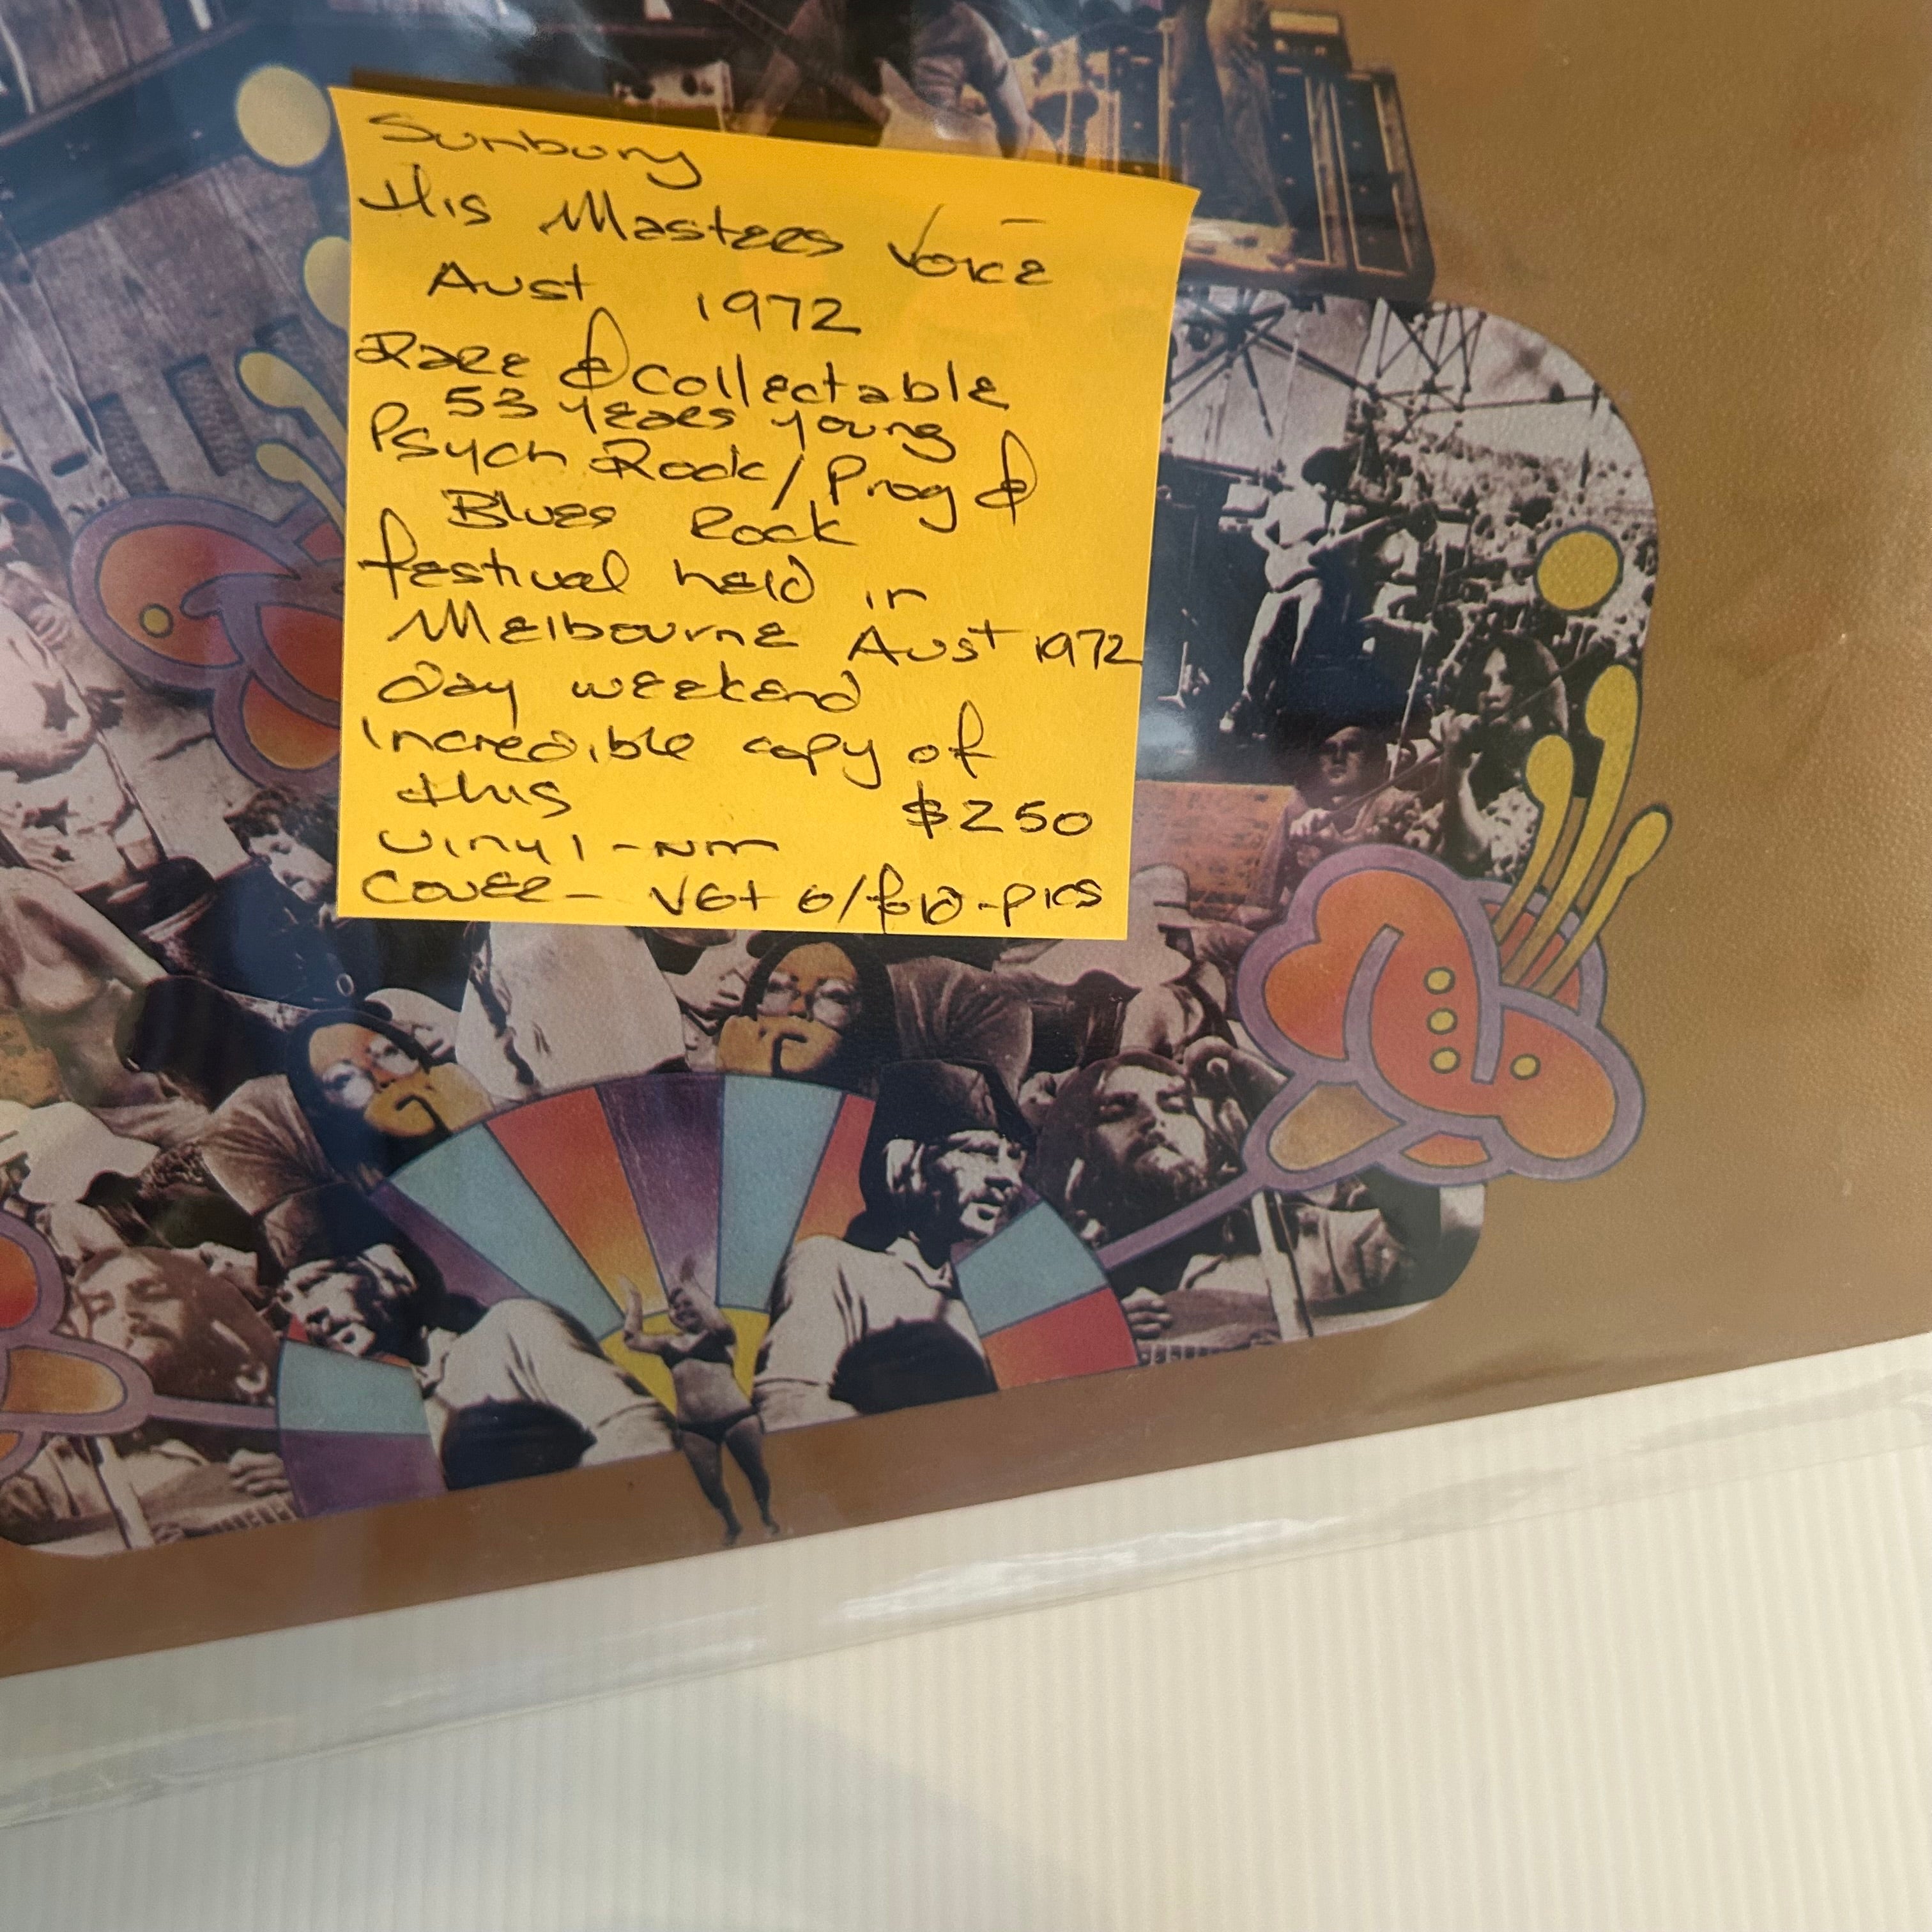 Sunbury
His Masters Voice
Aust 1972
Rare & Collectable
53 years young
Psych Rock/Prog &
Blues Rock
festival held in
Melbourne Aust 1972
day weekend
incredible copy of
this $250
vinyl - nm
cover - VG+ G/fold - pics